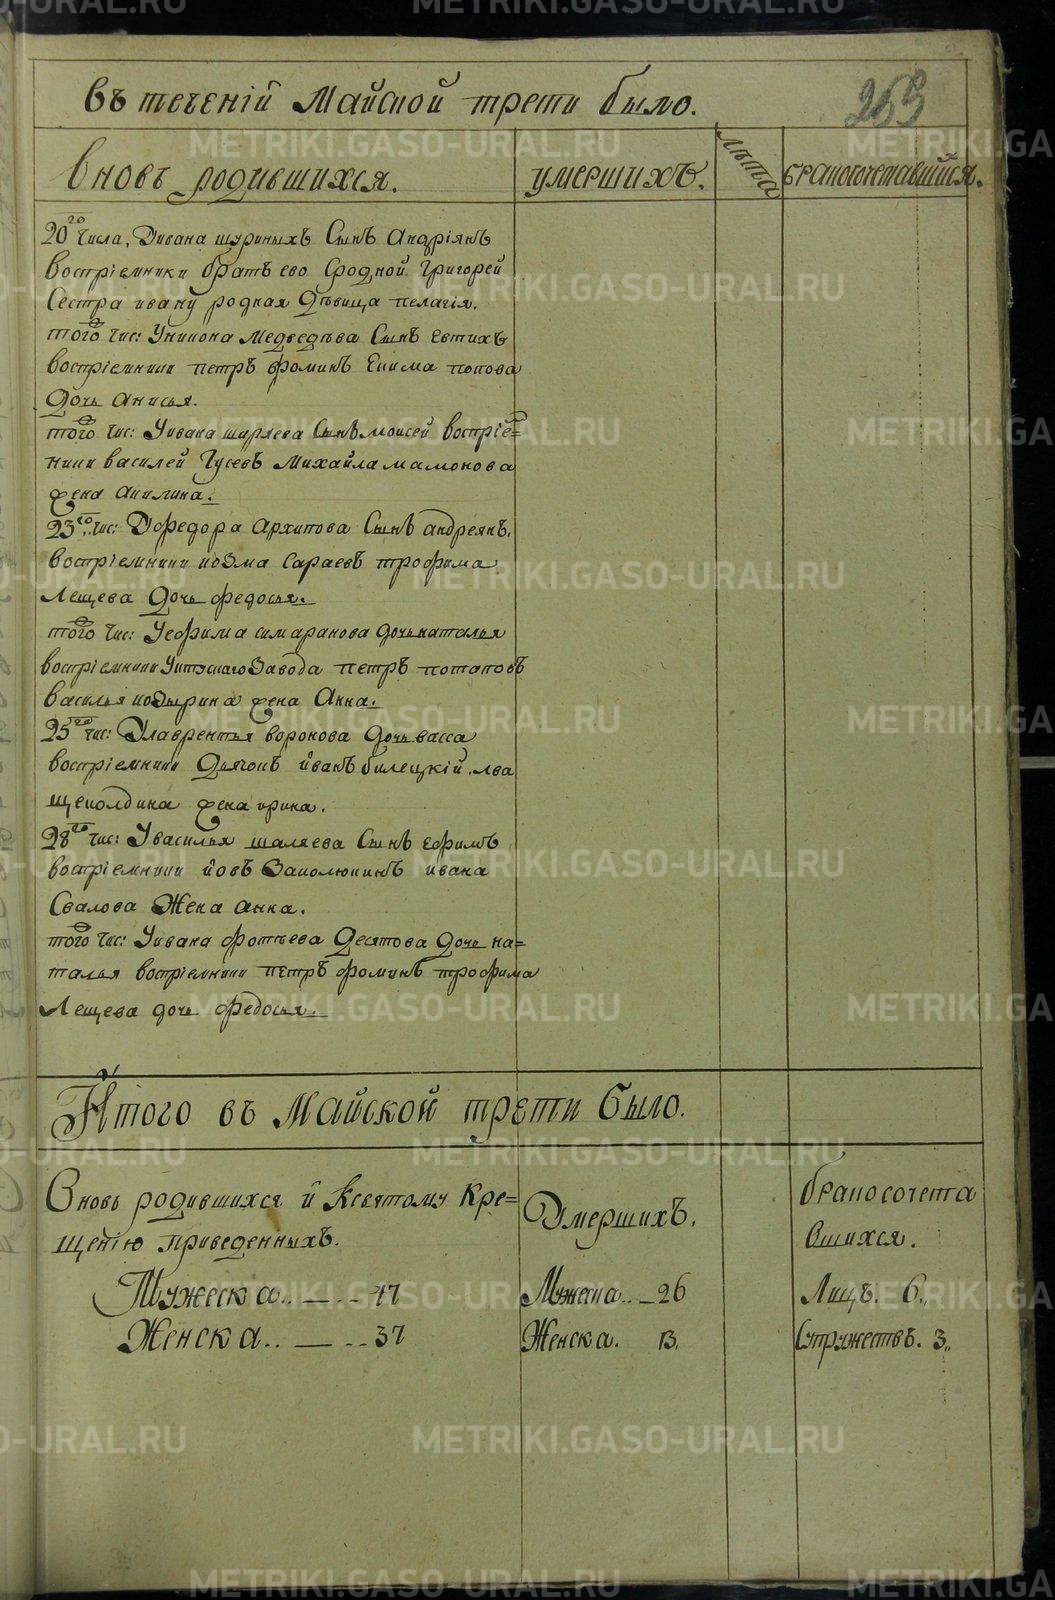 269
въ теченій Майской трети было.
вновь родившихся.
умершихъ.
лѣта
бракосочетавшися.
20го числа, Ивана шурыныхъ Сынъ Андріянъ
воспріемники братъ ево Сродной Григорей
Сестра ивану родная дѣвица пелагія.
того чис: У никона Медведѣва Сынъ Евтихъ
воспріемники петръ фоминъ Екима попова
дочь анисья.
того чис: У ивана ширяева Сынъ моисей воспріем=
ники василей Гусевъ Михайла мамонова
жена акилина.
23го чис: У федора Архипова Сынъ андреянъ.
воспріемники козма Сараевъ трофима
Лещева дочь федосья.
того чис: У ефима симаранова дочь наталья
воспріемники Уктускаго Завода петръ потаповъ
Василья козырина жена Анна.
25го чис: У лаврентья воронова дочь васса
воспріемники дьячокъ иванъ билецкій. лва
щеколдина жена ирина.
28го чис: У василья шаляева Сынъ Ефимъ
воспріемники иовъ Заколюкинъ ивана
Свалова Жена анна.
того чис: У ивана фотѣева десятова дочь на=
талья воспріемники петръ фоминъ трофима
Лещева дочь федосья.
Итого въ Майской трети было.
Вновь родившихся и Ксвятому Кре=
щенію приведенныхъ.
Мужеска.. — .. 47
Женска.. — .. 37
Умершихъ.
Мужеска .. — 26
Женска. 13.
бракосочета
вшихся.
Лицъ. 6.
Супружествъ. 3.